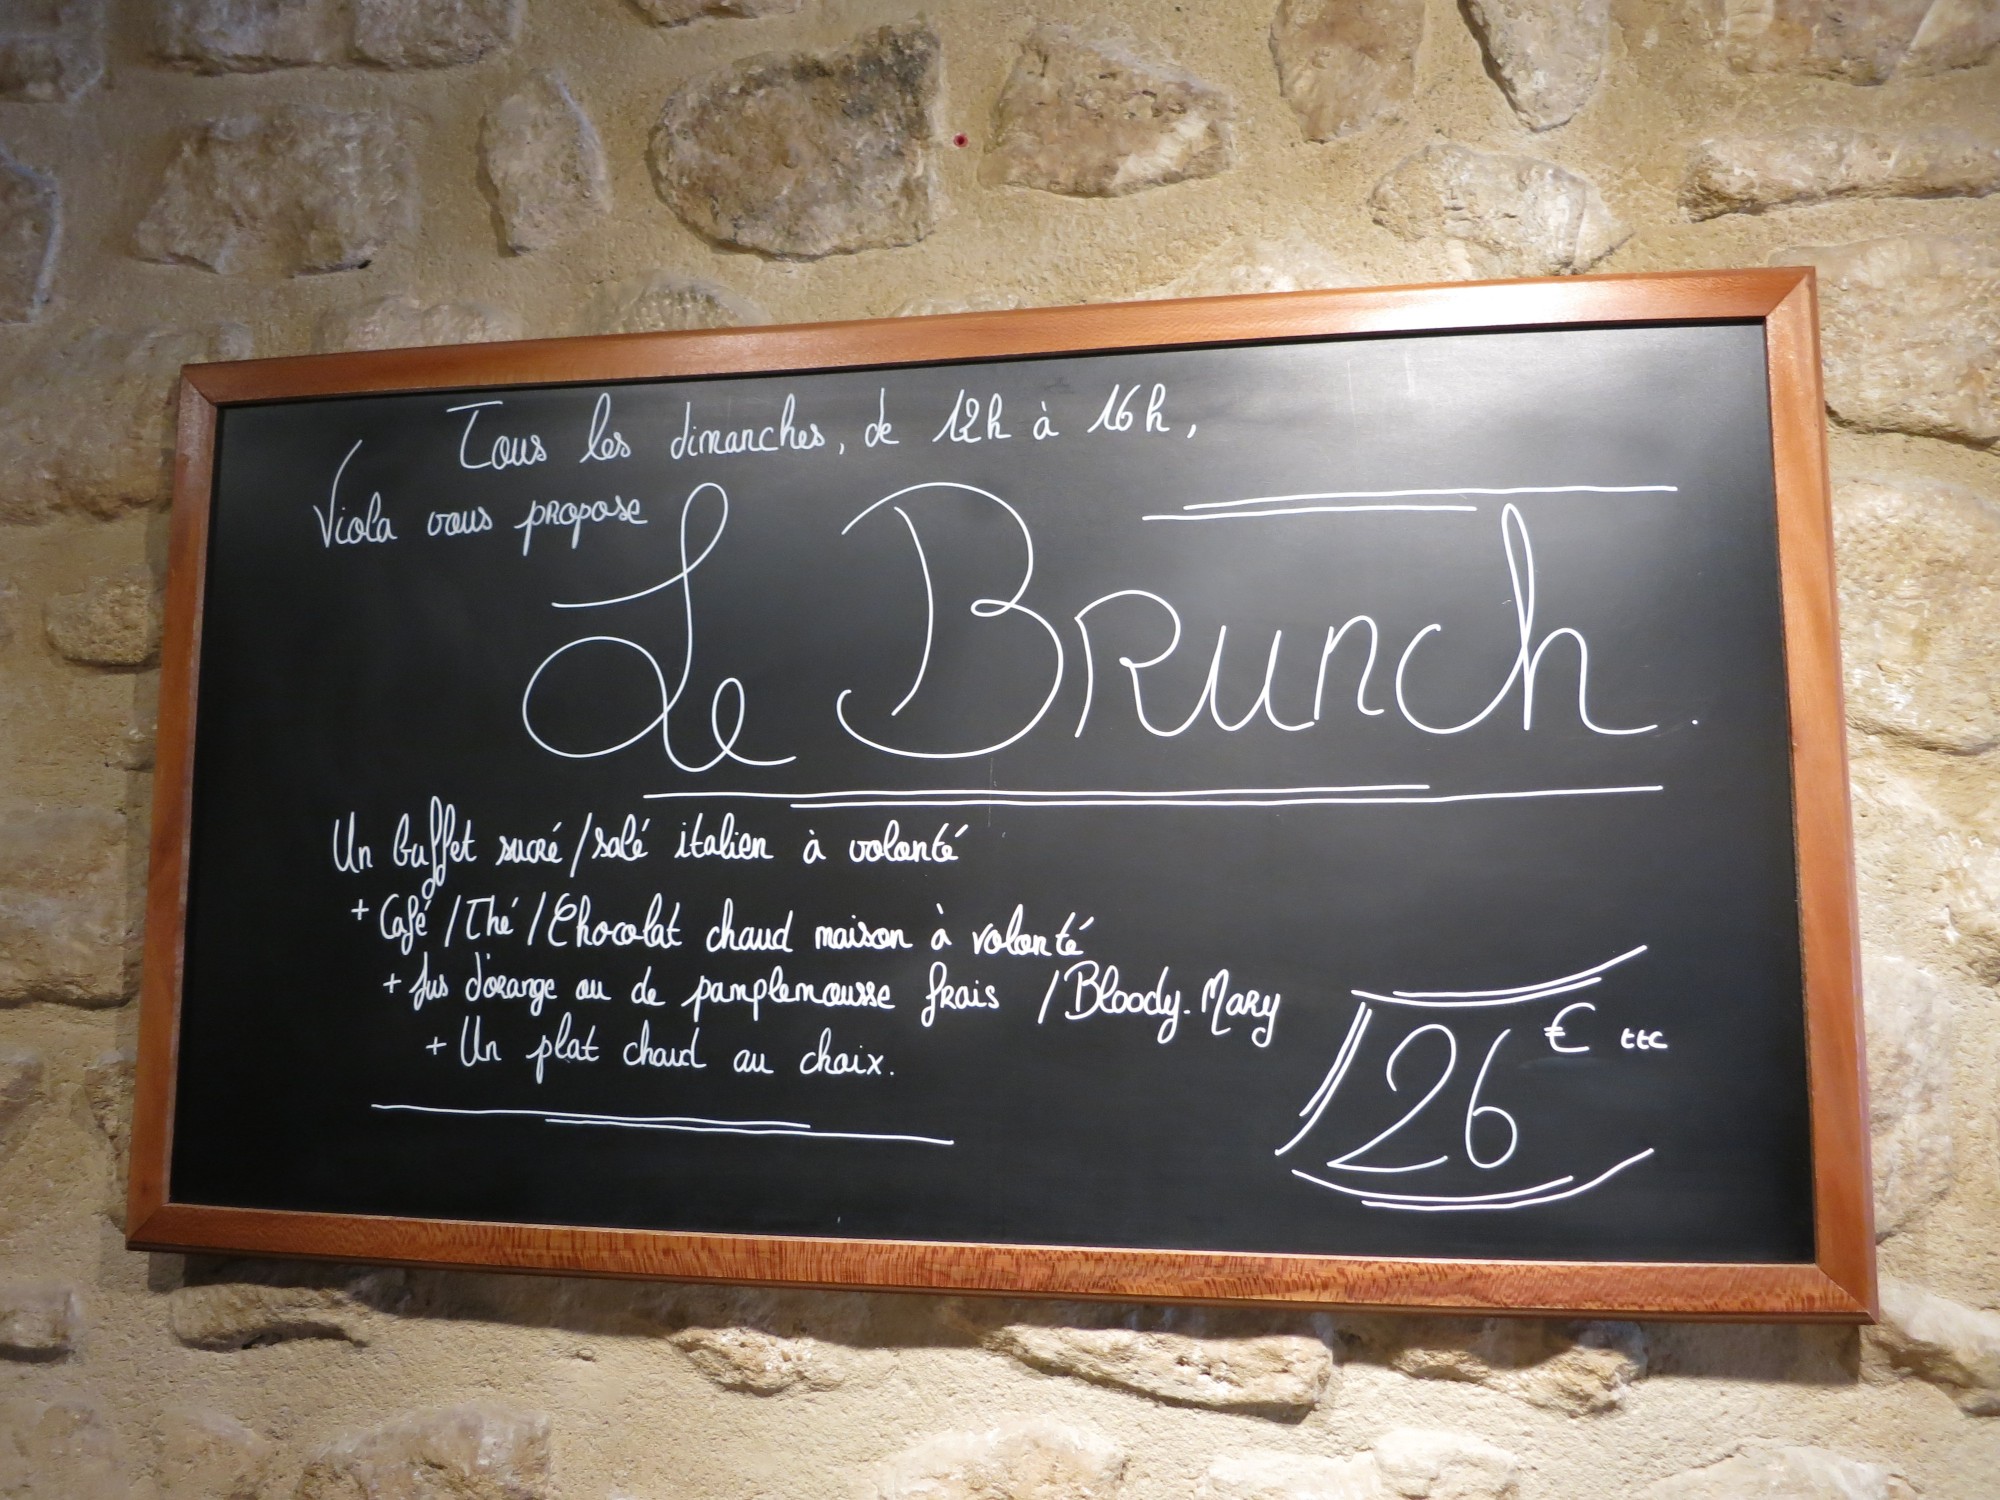 Tous les dimanches, de 12h à 16h,
Viola vous propose
Le Brunch.
Un buffet sucré/salé italien à volonté
+ Café/Thé/Chocolat chaud maison à volonté
+ Jus d'orange ou de pamplemousse frais / Bloody.Mary
+ Un plat chaud au choix.
26 € ttc